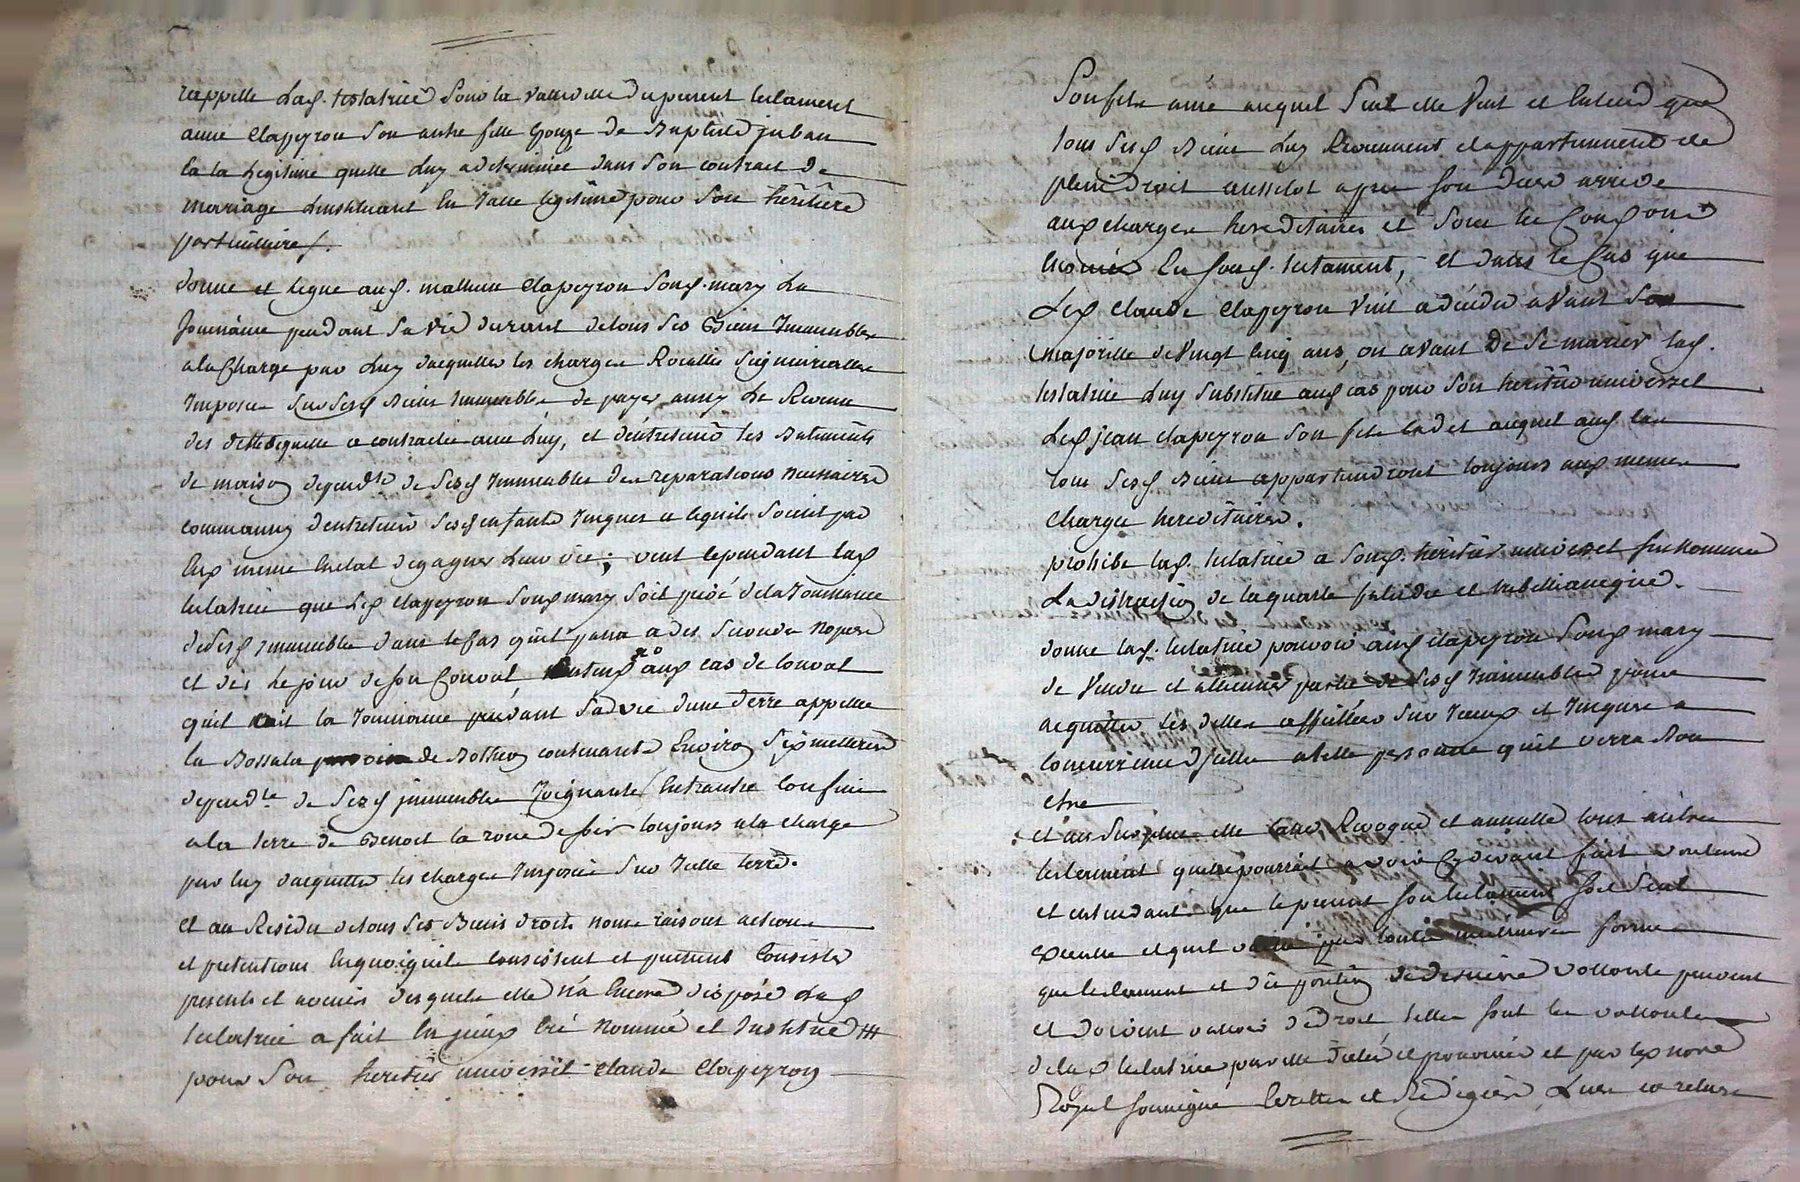 rappelle lad. testatrice sous la validitté du present testament
anne Clapeyron son autre fille Epouze de Baptiste juban
En la legitime quelle luy a determinée dans son contract de
mariage Linstituant En Jcelle legitime pour son hêritiere
particuliere.
donne et legue aud. mathieu Clapeyron Sond. mary La
Jouissance pendant sa vie durant de tous ses Biens Jmmeubles
a la Charge par Luy dacquitter les charges Royalles Seigneurialles
Jmposés Sur sesd Biens Jmmeubles de payer aussy Le Revenu
des dettes quelle a contractée avec Luy, et dentretenir les Batiments
de maison dependts de sesd Jmmeubles des reparations necessaires
comm aussy dentretenir sesd enfants Jusques a cequils soient par
Eux meme En etat de gagner Leur vie ; veut cependant lad
testatrice que Led Clapeyron Sond mary soit privé de la Jouissance
de sesd Jmmeubles dans le cas quil passa a des secondes nopces
et dès le jour de son Convol, aud cas de Convol
quil ait la Jouissance pendant sa vie dune Terre appellée
la de Bothieu contenant Environ Six metterées
dependte de sesd jmmeubles Joignante Entrautre Confins
a la terre de Benoit la roue de soir toujours a la charge
par luy dacquitter les charges Jmposées sur Jcelle terre.
Et au Residu de tous ses Biens droits noms raisons actions
et pretentions En quoi quils consistent et puissent Consister
presents et avenirs desquels elle n'a Encore disposé Lad
testatrice a fait Créé Nommé et Institué
pour son heritier universel Claude Clapeyron
Son fils ainé auquel Seul elle Veut et Entend que
tous sesd Biens Luy Reviennent et appartiennent de
plein Droit aussitot apres son Deces arrivé
aux charges hereditaires et sous les
En sond. testament, Et dans le Cas que
Led Claude Clapeyron vint a déceder avant sa
majoritté de Vingt Cinq ans, ou avant De se marier lad.
testatrice Luy substitue aud cas pour son heritier universel
Led jean Clapeyron son fils Cadet auquel aud cas
tous sesd Biens appartiendront toujours aux memes
Charges hereditaires.
prohibe lad. testatrice a sond. heritier universel sus nommé
La distraction de la quarte falcidie et trebellianique.
donne lad. testatrice pouvoir aud Clapeyron Sond mary
de Vendre et aliener partie de sesd Jmmeubles pour
acquitter les dettes affectées sur Jceux et Jusques a
Concurrence dJcelles a telle personne quil verra Bon
etre
Et au surplus elle Casse, Revoque et annulle tous autres
testament quelle pourroit avoir Cy devant fait voulant
et entendant que le present son testament soit seul
Execuré et quil vaille par toutte meilleure forme
que testament et disposition de derniere vollonté peuvent
et doivent valloir de Droit, telles sont les vollontés
de lad testatrice par elle dictés et prononcés et par led nore
Royal soussigné Ecrittes et Redigées, Lues et relues